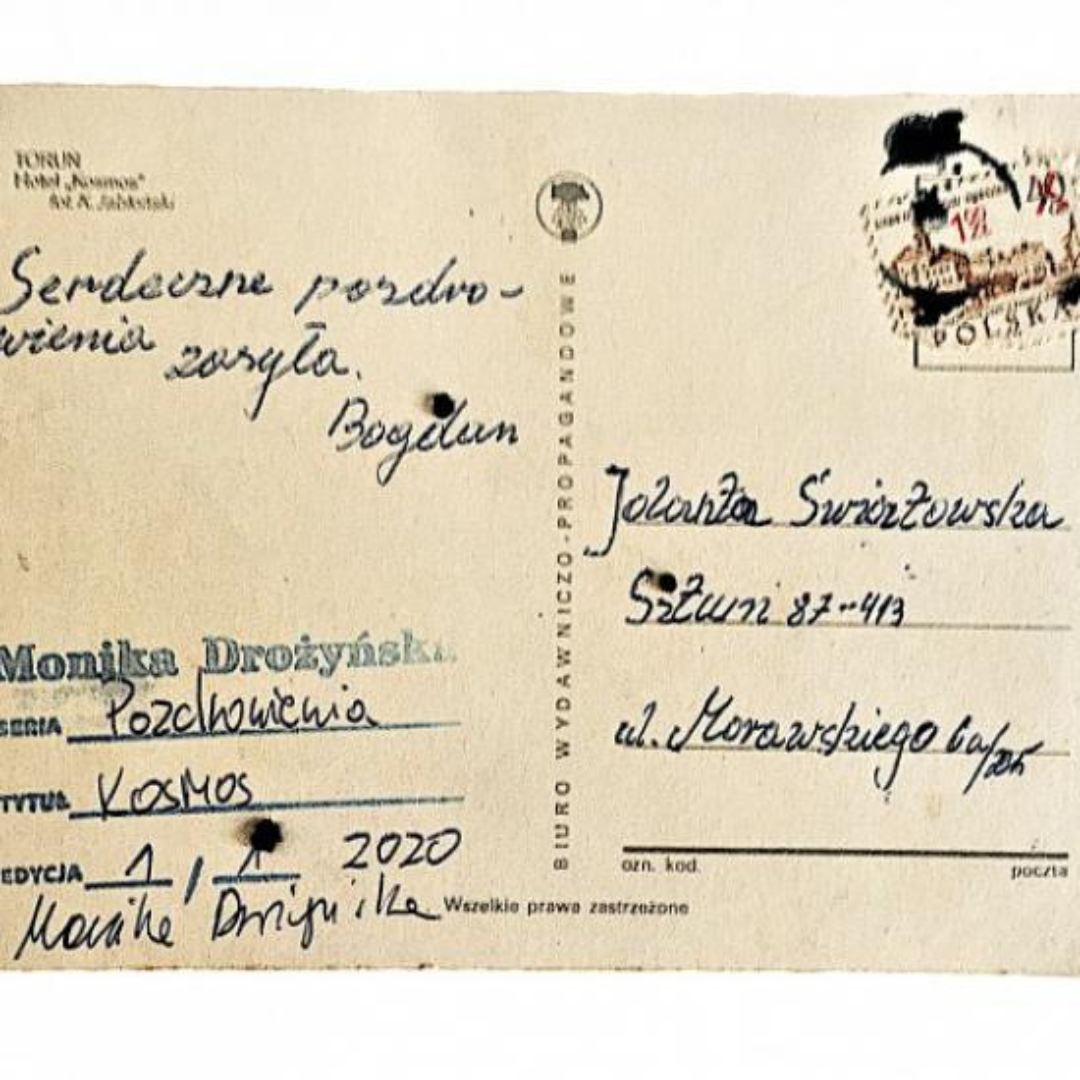 TORUŃ
Hotel „Kosmos"
fot. K. Jabłoński
Serdeczne pozdro-
wienia zasyła.
Bogdan
Monika Drożyńska
SERIA Pozdrowienia
TYTUŁ KOSMOS
EDYCJA 1 / 1 2020
Monika
BIURO WYDAWNICZO-PROPAGANDOWE
Wszelkie prawa zastrzeżone
POLSKA
Jolanta Świątkowska
87-413
ul. Morawskiego 6a/
ozn. kod. poczta